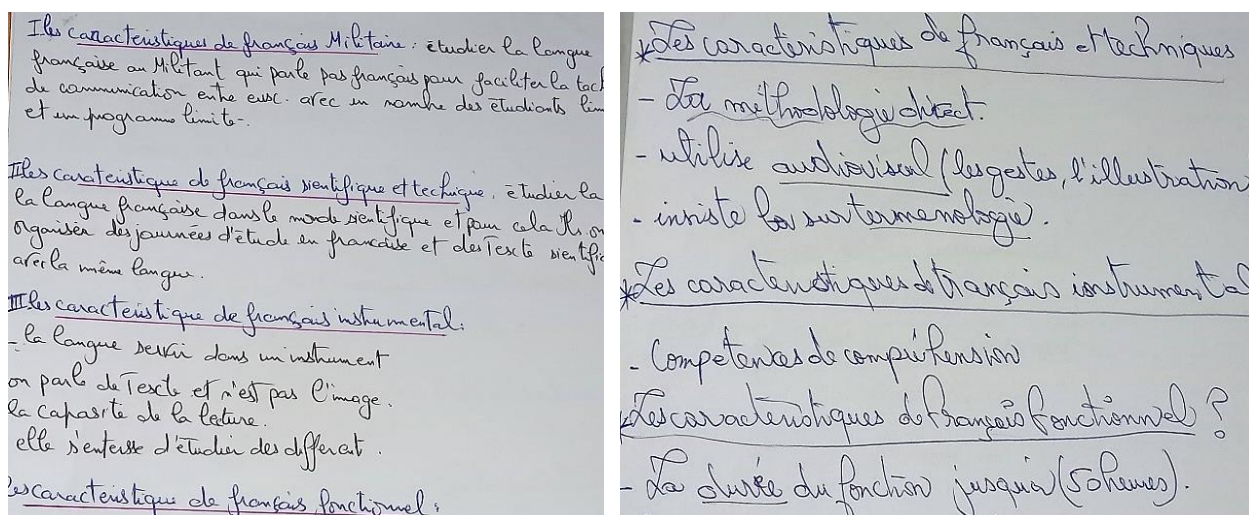 I les caractéristiques de français Militaire : étudier la langue
française au Militant qui parle pas français pour faciliter la tach
de communication entre eusc. avec un nombre des étudiants lim
et un programe limite-.
II les caratéistique de français sientifique et techique, étudier la
la langue française dans le monde sientifique et pour cela Ils on
organiser des journées d'étude en francaise et des Texte sientific
avec la même langue.
III les caractéristique de français instrumental :
- la langue servir dans un instrument
on parle de Texte et n'est pas l'image.
la capasite de la lecture.
elle s'enterse d'étudier des différent.
Les caractéristique de français fonctionnel :
* Les caractéristiques de français et techniques
- La méthodologie direct.
- utilise audiovisual (les gestes, l'illustration
- insiste sur termenologie.
* Les caractéristiques de français instrumental
- Compétences de compréhension
* Les caractéristiques de français fonctionnel ?
- La durée du fonction jusqu'à (50 heures).